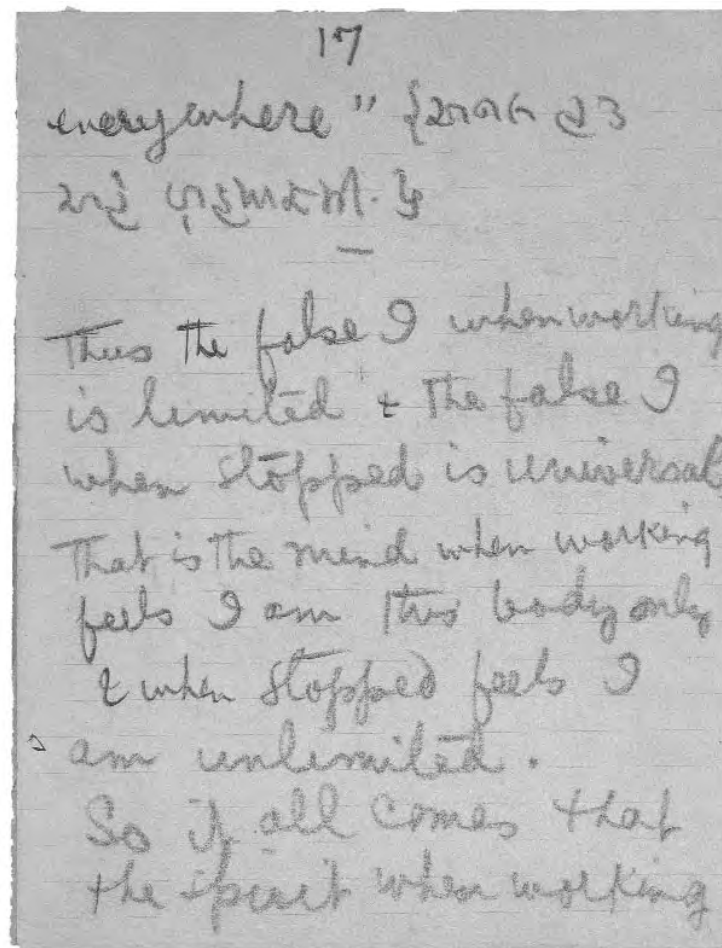 17
everywhere"
Thus the false I when working
is limited & the false I
when stopped is universal
That is the mind when working
feels I am this body only
& when stopped feels I
am unlimited.
So it all comes that
the spirit when working